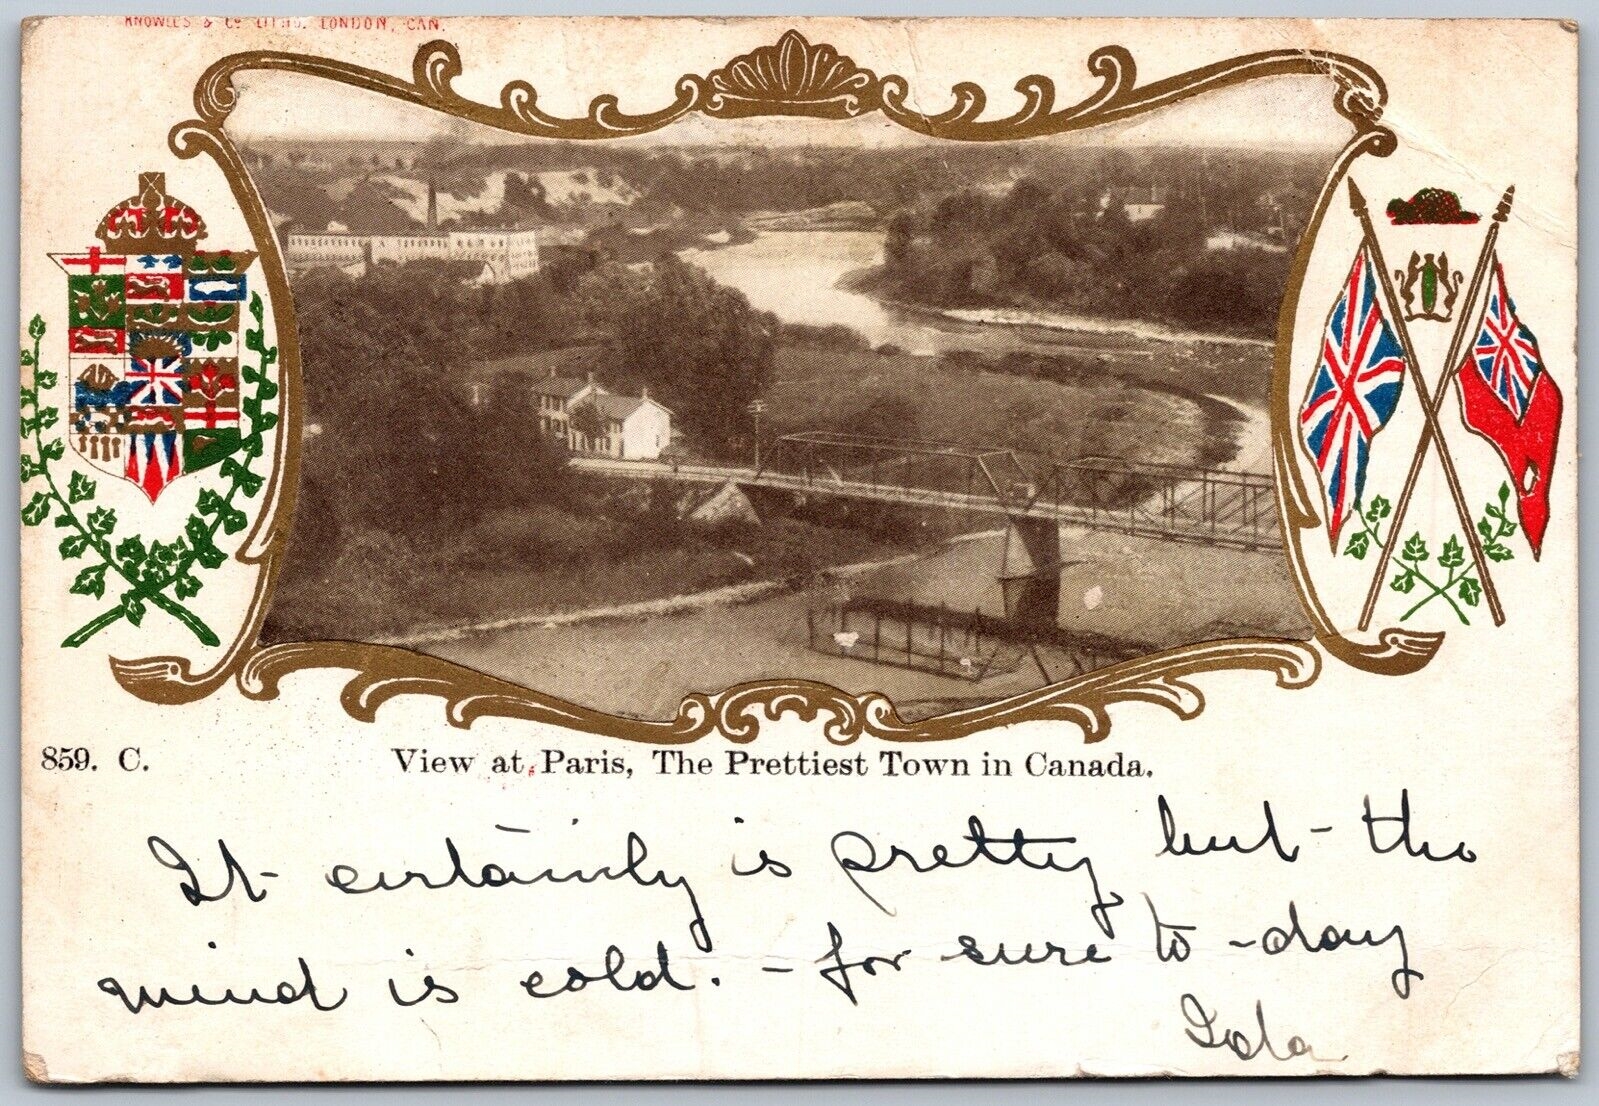 KNOWLES & Co LITHO. LONDON, CAN.
859. C.
View at Paris, The Prettiest Town in Canada.
It certainly is pretty but - the
wind is cold. - for sure to-day
Ida